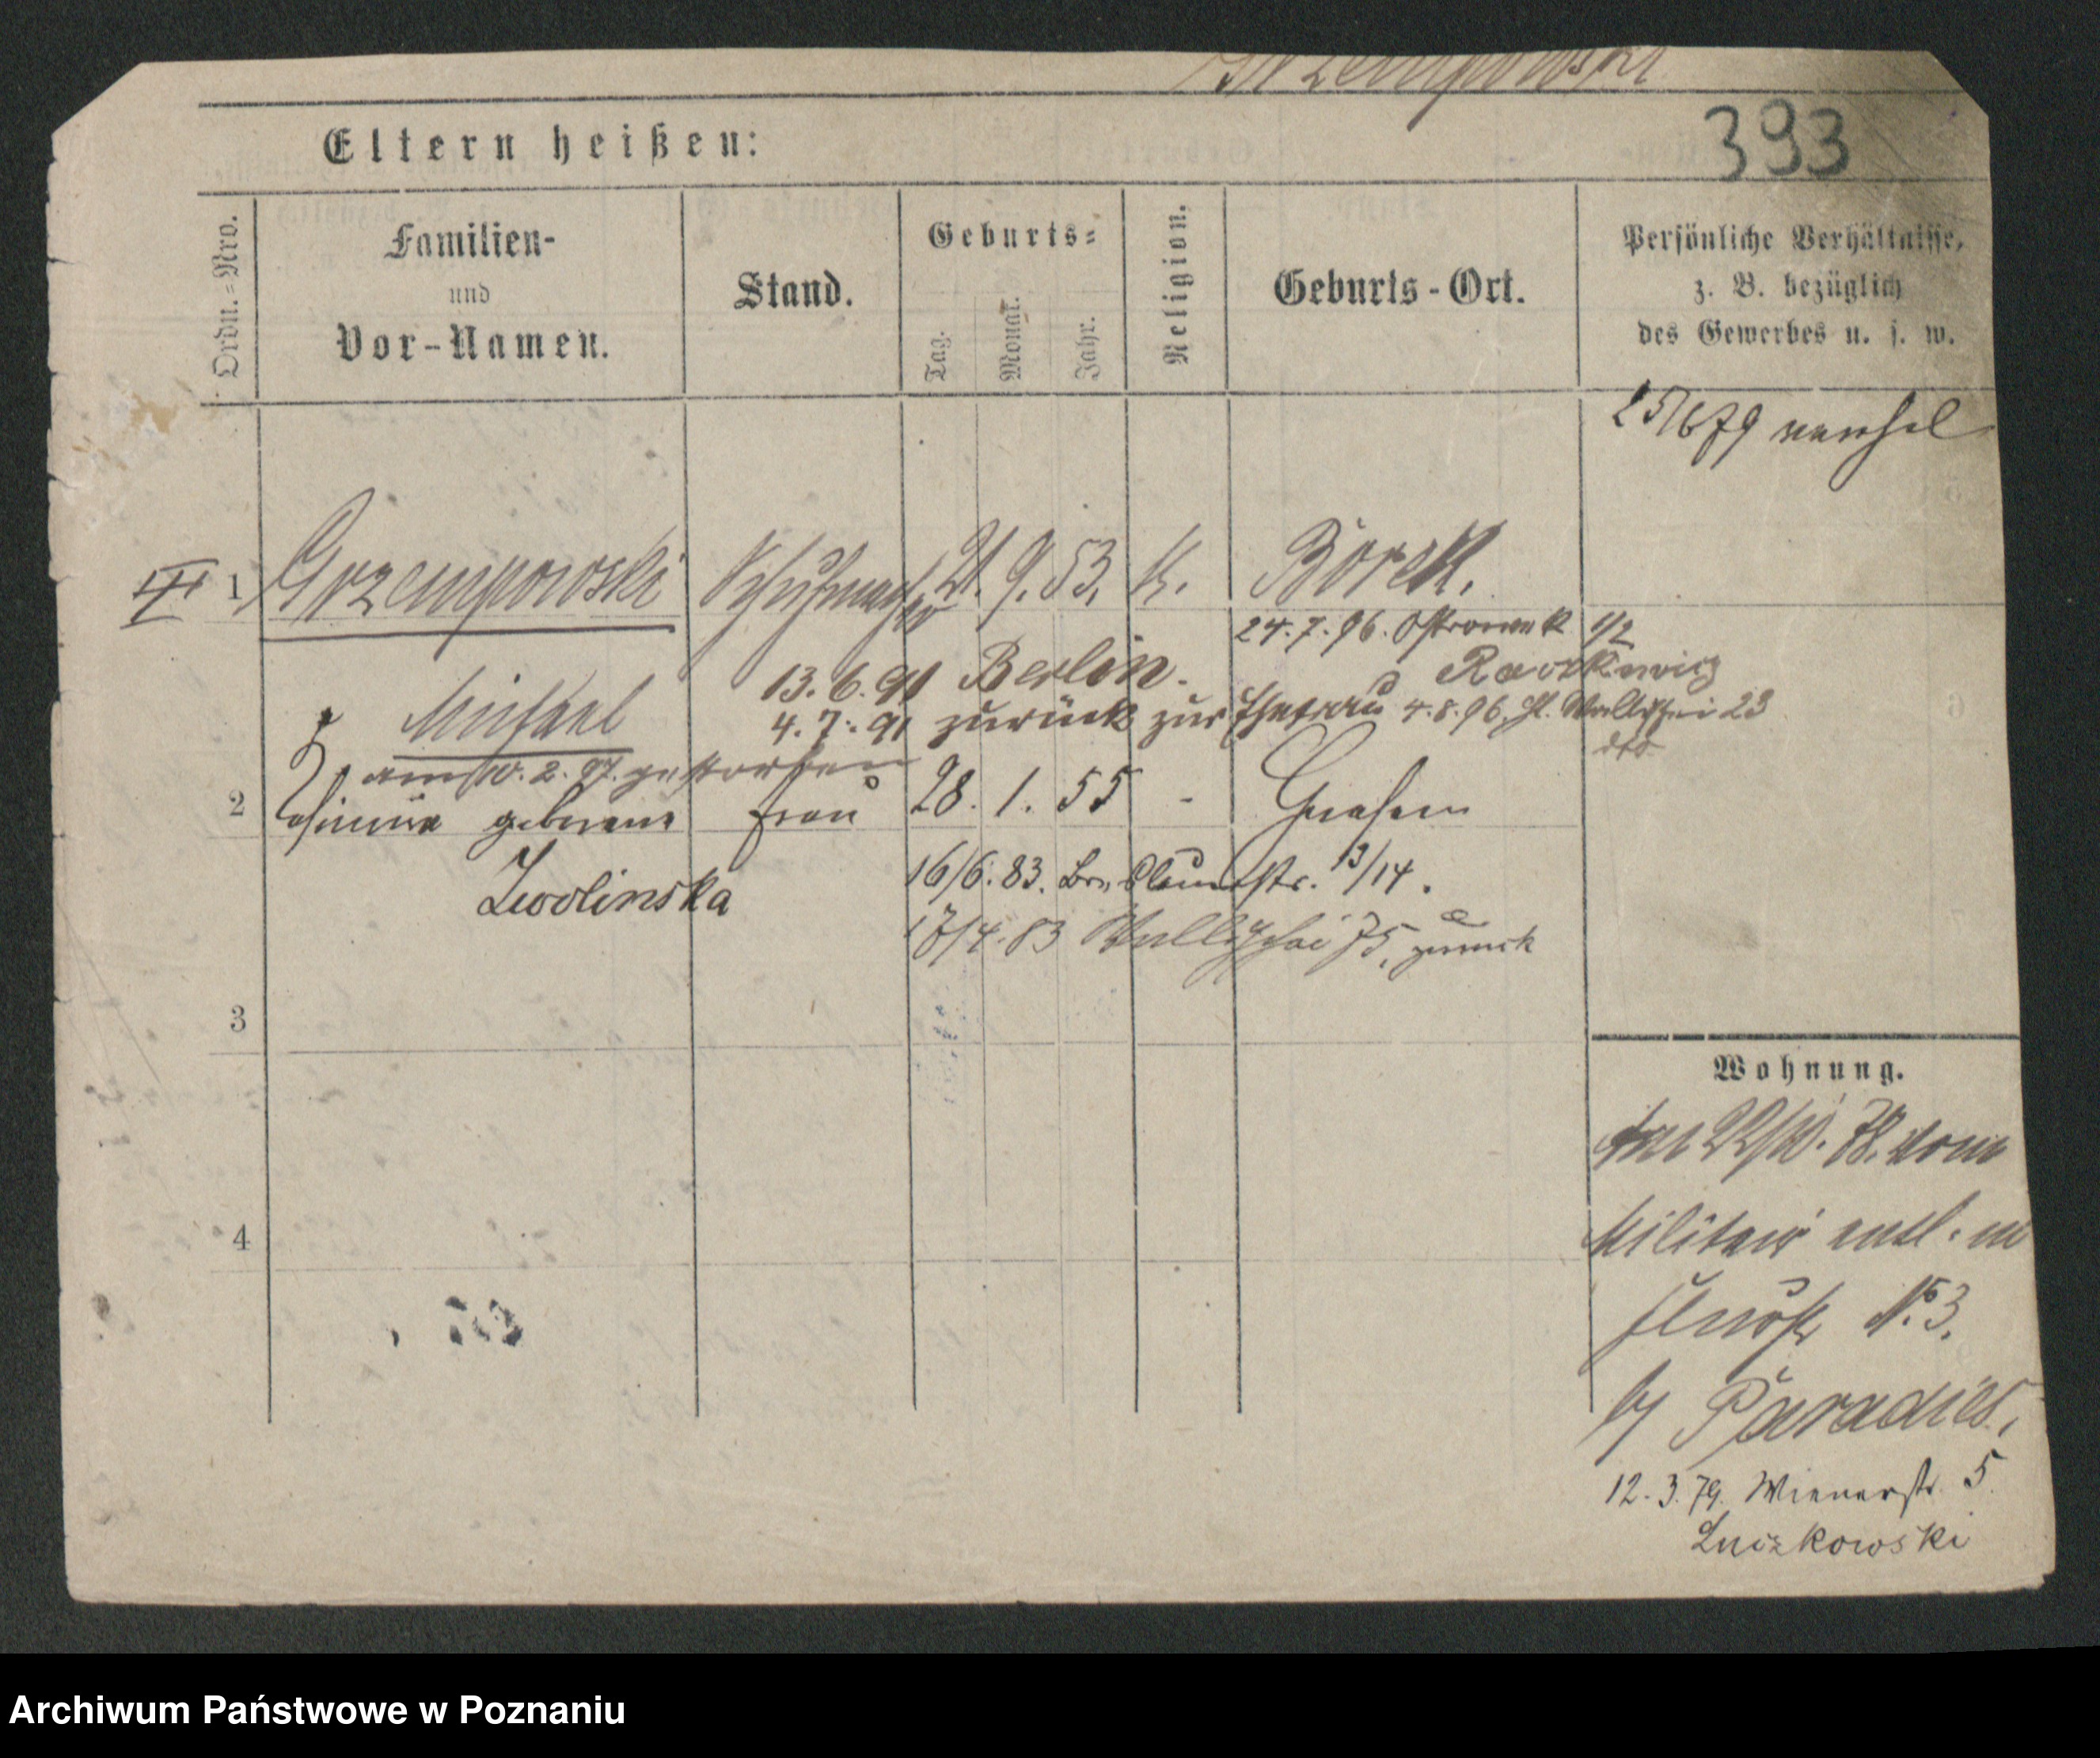 Grzempowski
393
Eltern heißen:
Ordn.=Nro.
Familien-
und
Vor-Namen.
Stand.
Geburts=
Tag.
Monat.
Jahr.
Religion.
Geburts-Ort.
Persönliche Verhältnisse,
z. B. bezüglich
des Gewerbes u. s. w.
25/6 79
III 1 Grzempowski Schuhmacher 21. 9. 53. k. Borek.
24. 7. 96. Ostrowek 1/2
13. 6. 91 Berlin.
Michael
4. 7. 91 zurück zur Ehefrau 4. 8. 96. Wallischei 23
dto
am 10. 2. 97. gestorben
2 geborene Frau 28. 1. 55 - Gnesen
Zwolinska
16/6. 83. 13/14.
17/4. 83 Wallischei 75, zurück
3
4
Wohnung.
Am 22/10. 78. vom
Militair entl. in
No 3.
b/ Paradies,
12. 3. 79. Wienerstr. 5.
Luczkowski
Archiwum Państwowe w Poznaniu